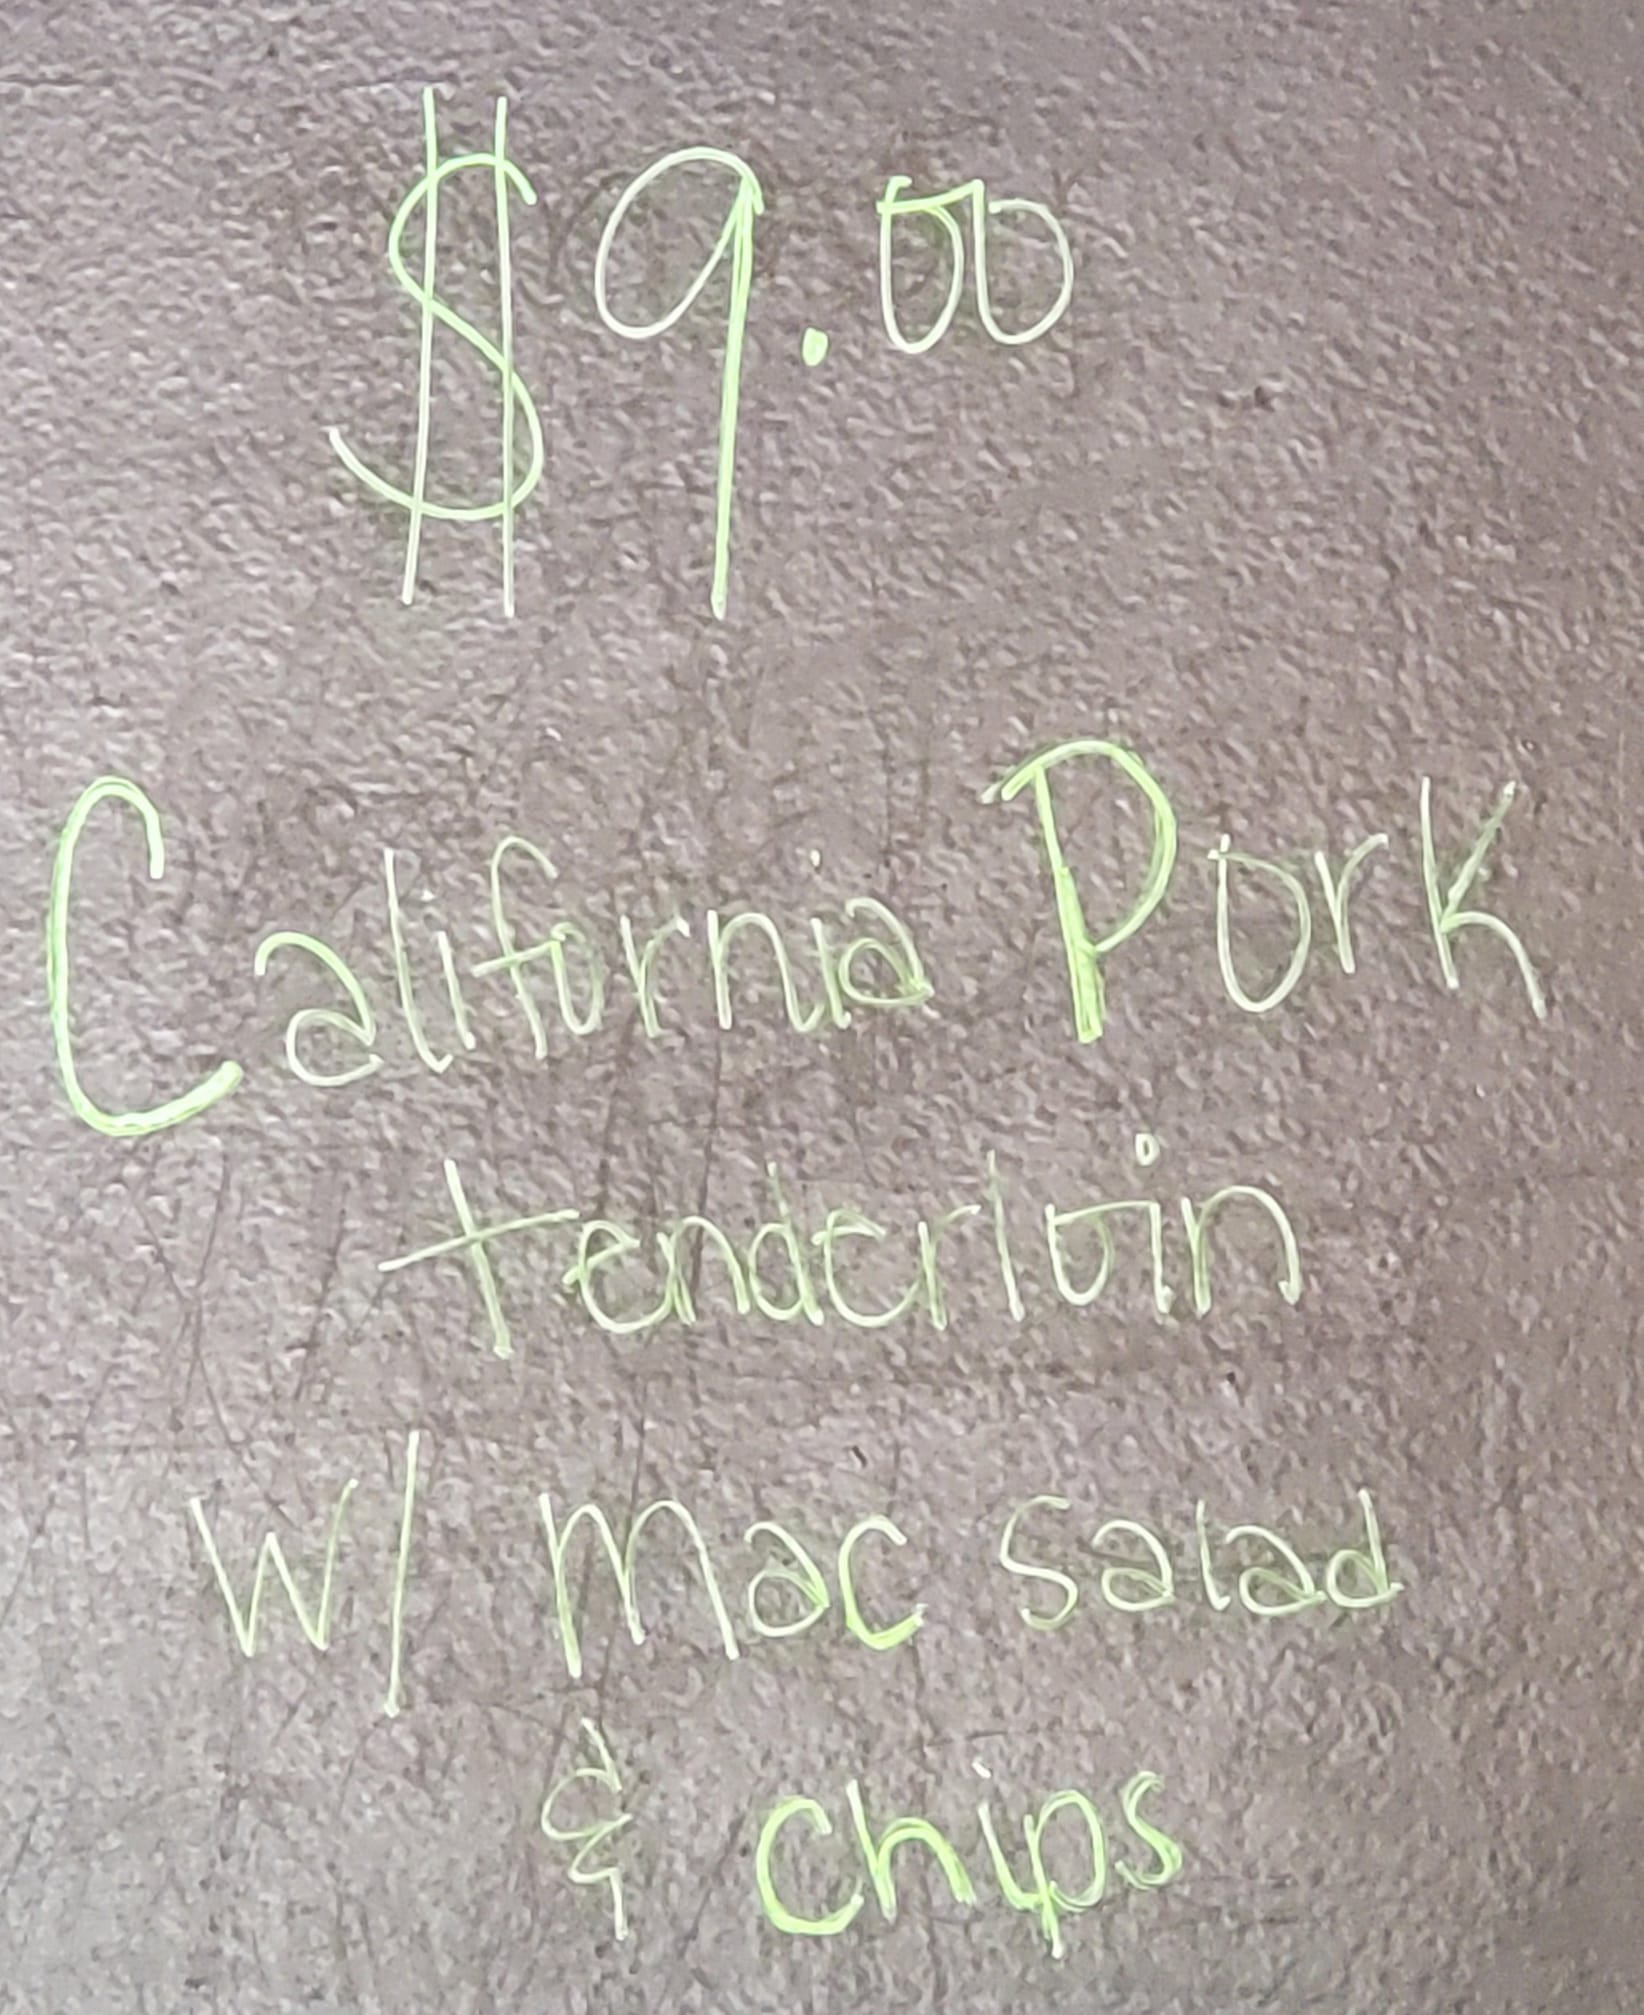 $9.00
California Pork
tenderloin
w/ mac salad
& chips